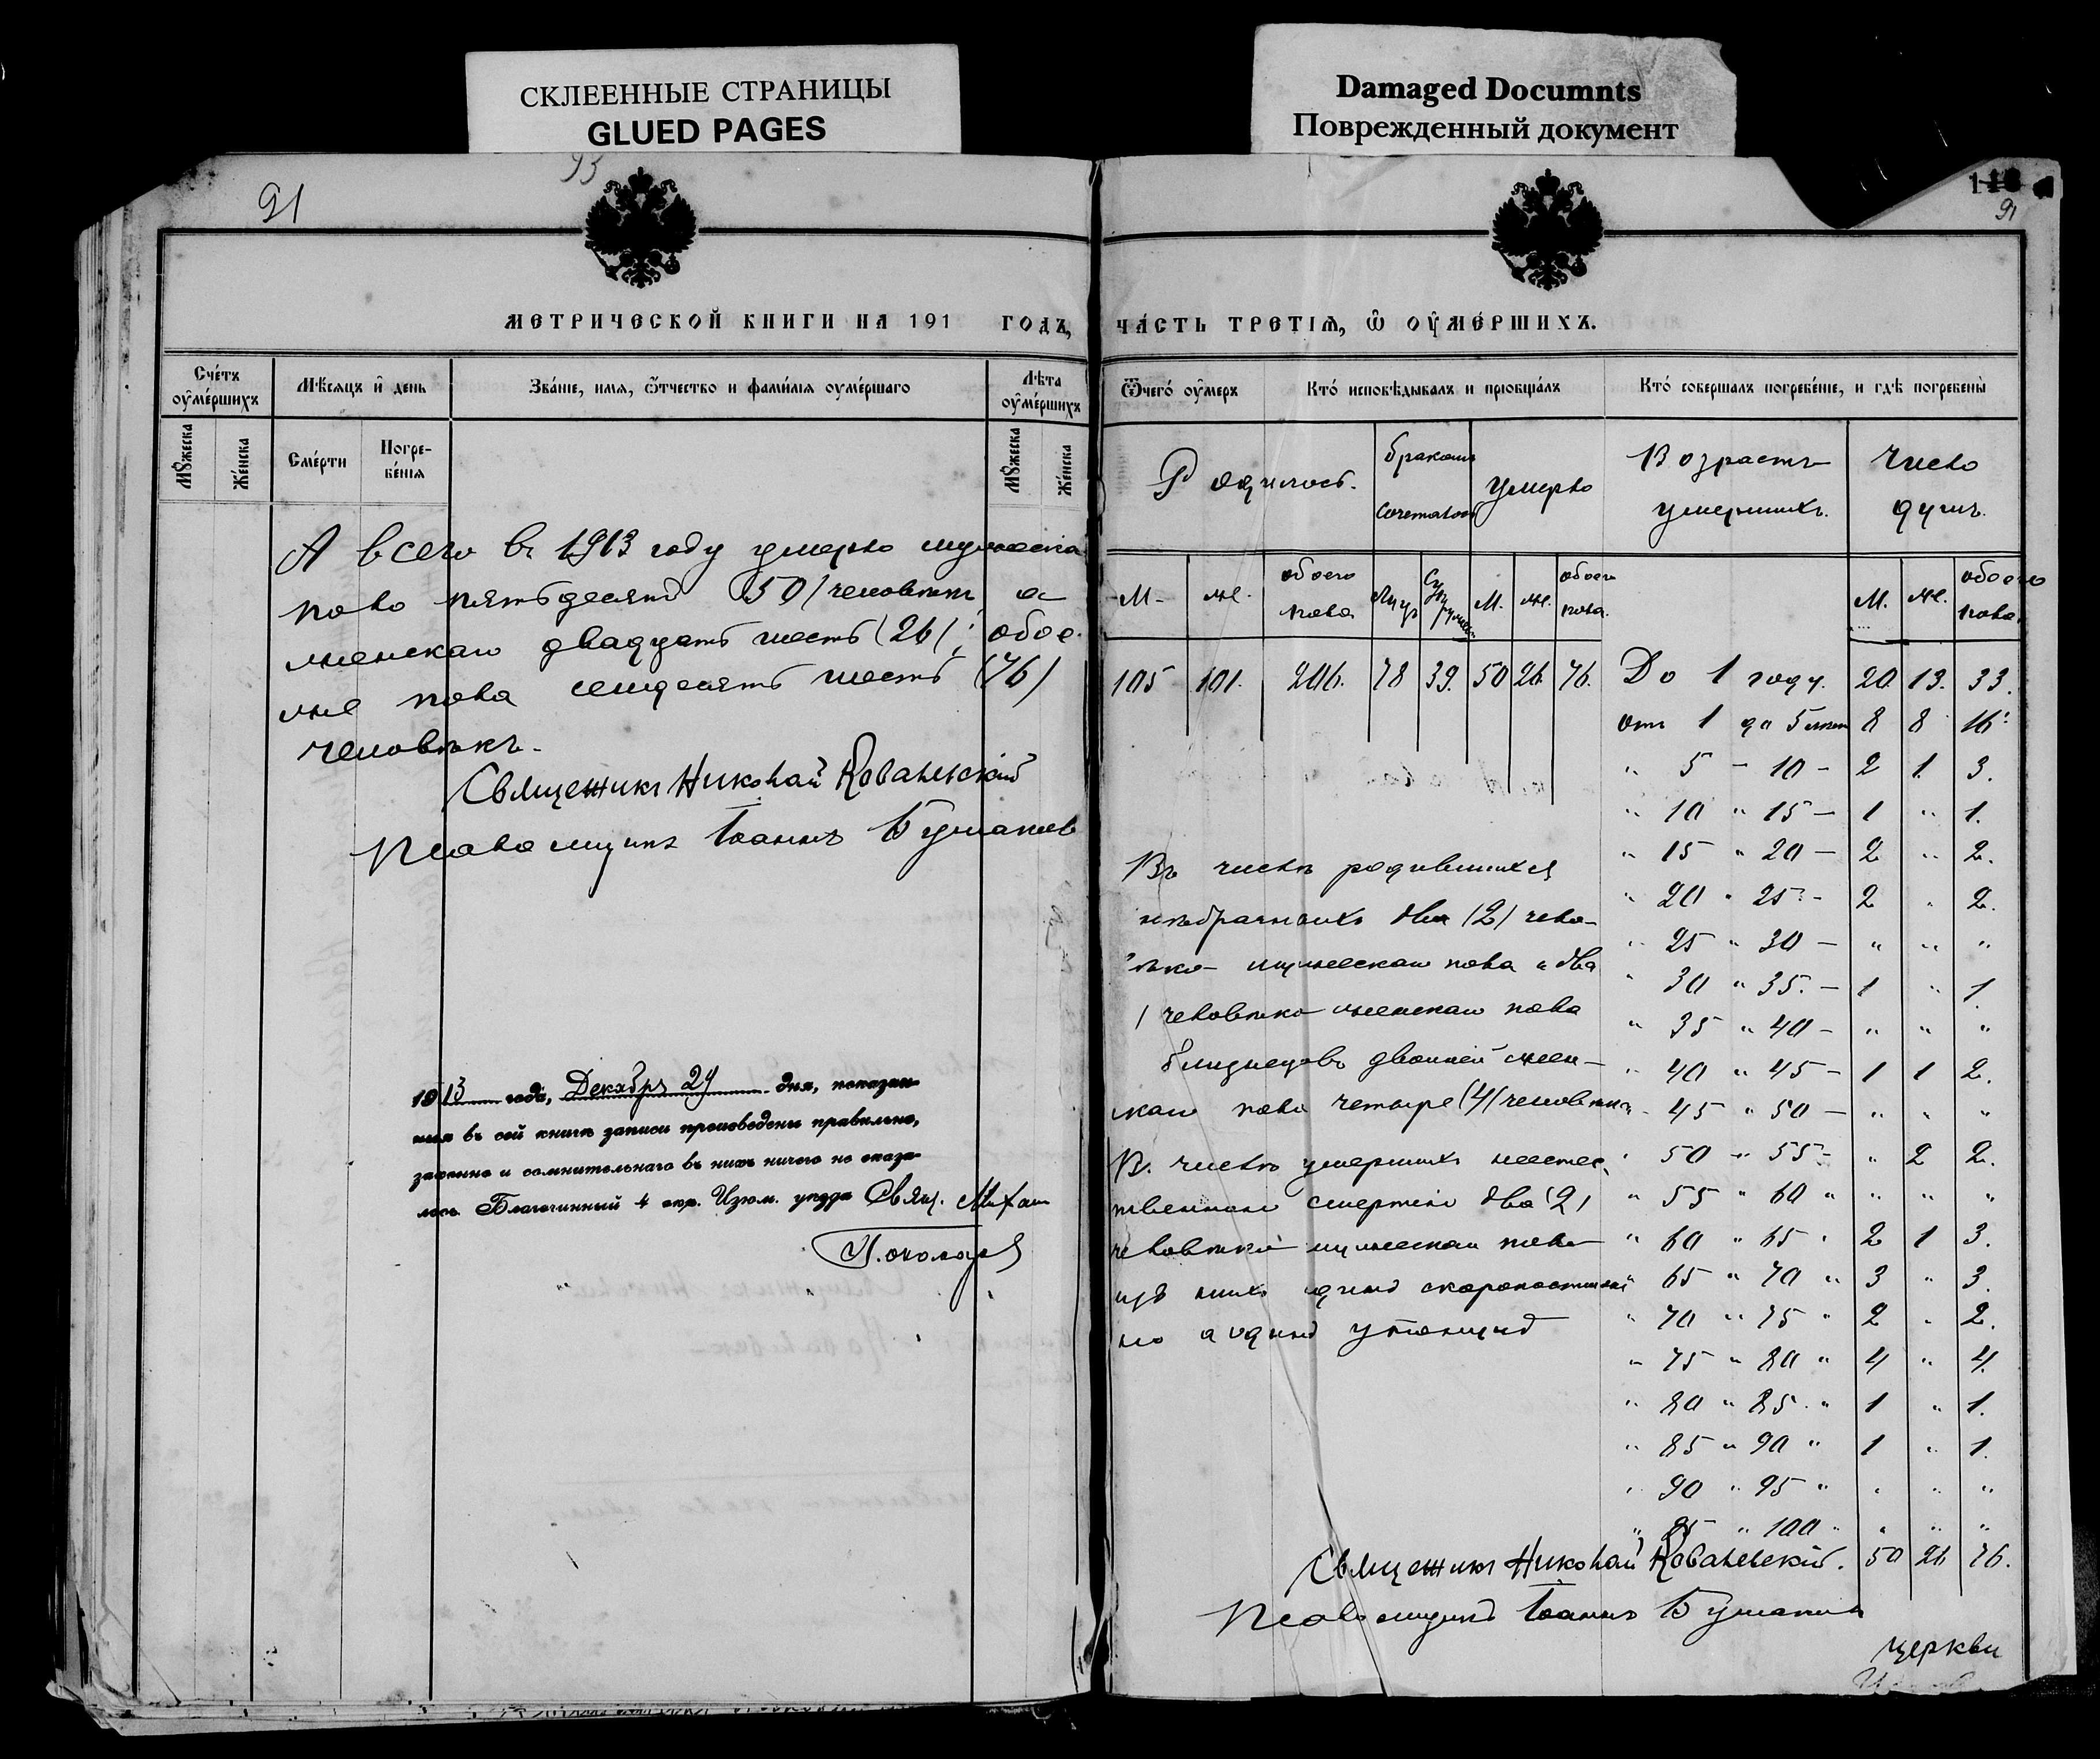 СКЛЕЕННЫЕ СТРАНИЦЫ
GLUED PAGES
Damaged Documnts
Поврежденный документ
93
91
МЕТРИЧЕСКОЙ КНИГИ НА 191 ГОДЪ,
Сче́тъ оу҆ме́ршихъ
Мѣсяцъ и҆ день
Зва́нїе, имя, ѿтчество и фами́лїя оуме́ршаго
Лѣта оу҆ме́ршихъ
Мꙋжеска
Же́нска
Сме́рти
Погребе́нїя
Мꙋжеска
Же́нска
А всего въ 1913 году умерло мужеска
пола пятьдесятъ (50) человѣкъ а
женскаго двадцать шесть (26); обое-
же пола семдесятъ шесть (76)
человѣкъ.
Священникъ Николай Ковалевскій
Псаломщикъ Іоаннъ
1913 года, Декабря 29 дня, показан-
ныя въ сей книгѣ записи произведены правильно,
законно и сомнительнаго въ нихъ ничего не оказа-
лось. Благочинный 4 окр. Изюм. уѣзда Свящ.
91
ЧА́СТЬ ТРЕТЇѦ, Ѡ ОУ҆МЕ́РШИХЪ.
Ѿчего́ оу҆меръ
Кто́ исповѣ́дывалъ и прїобща́лъ
Кто́ соверша́лъ погребе́нїе, и гдѣ погребены̀
Родилось.
Браковъ
Сочеталось
Умерло
Возрастъ
умершихъ.
Число
душъ.
М. же. обоего пола
М. же. обоего пола.
М. же. обоего пола.
105 101. 206. 78 39. 50 26. 76.
До 1 году. 20. 13. 33.
отъ 1 до 5 лѣтъ 8 8 16.
" 5 - 10 - 2 1. 3.
" 10 " 15 - 1 " 1.
" 15 " 20 - 2 " 2.
" 20 " 25 - 2 " 2.
" 25 " 30 - " " "
" 30 " 35. - 1 " 1.
" 35 " 40 - " " "
" 40 " 45 - 1 1 2.
" 45 " 50 - " " "
" 50 " 55 - " 2 2.
" 55 " 60 " " " "
" 60 " 65 " 2 1 3.
" 65 " 70 " 3 " 3.
" 70 " 75 " 2 " 2.
" 75 " 80 " 4 " 4.
" 80 " 85 " 1 " 1.
" 85 " 90 " 1 " 1.
" 90 " 95 " " " "
" 95 " 100 " " " "
50 26 76.
Въ числѣ родившихся
внѣбрачныхъ два (2) чело-
вѣка мужескаго пола и два
человѣка женскаго пола
близнецовъ двойней жен-
скаго пола четыре (4) человѣка
Въ числѣ умершихъ неестес-
твенною смертію два (2)
человѣка мужескаго пола
изъ нихъ одинъ скоропостиж
но а одинъ
Священникъ Николай Ковалевскій.
Псаломщикъ Іоаннъ
церкви